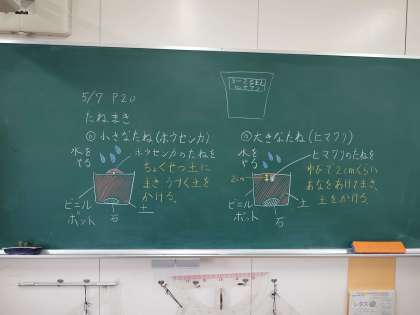 5/7 P20
たねまき
小さなたね(ホウセンカ)
水を
やる
ホウセンカのたねを
ちょくせつ土に
まきうすく土を
かける。
ビニル
ポット
石
土
大きなたね(ヒマワリ)
水を
やる
ヒマワリのたねを
ゆびで2cmくらい
あなをあけてまき、
土をかける。
2cm
ビニル
ポット
石
土